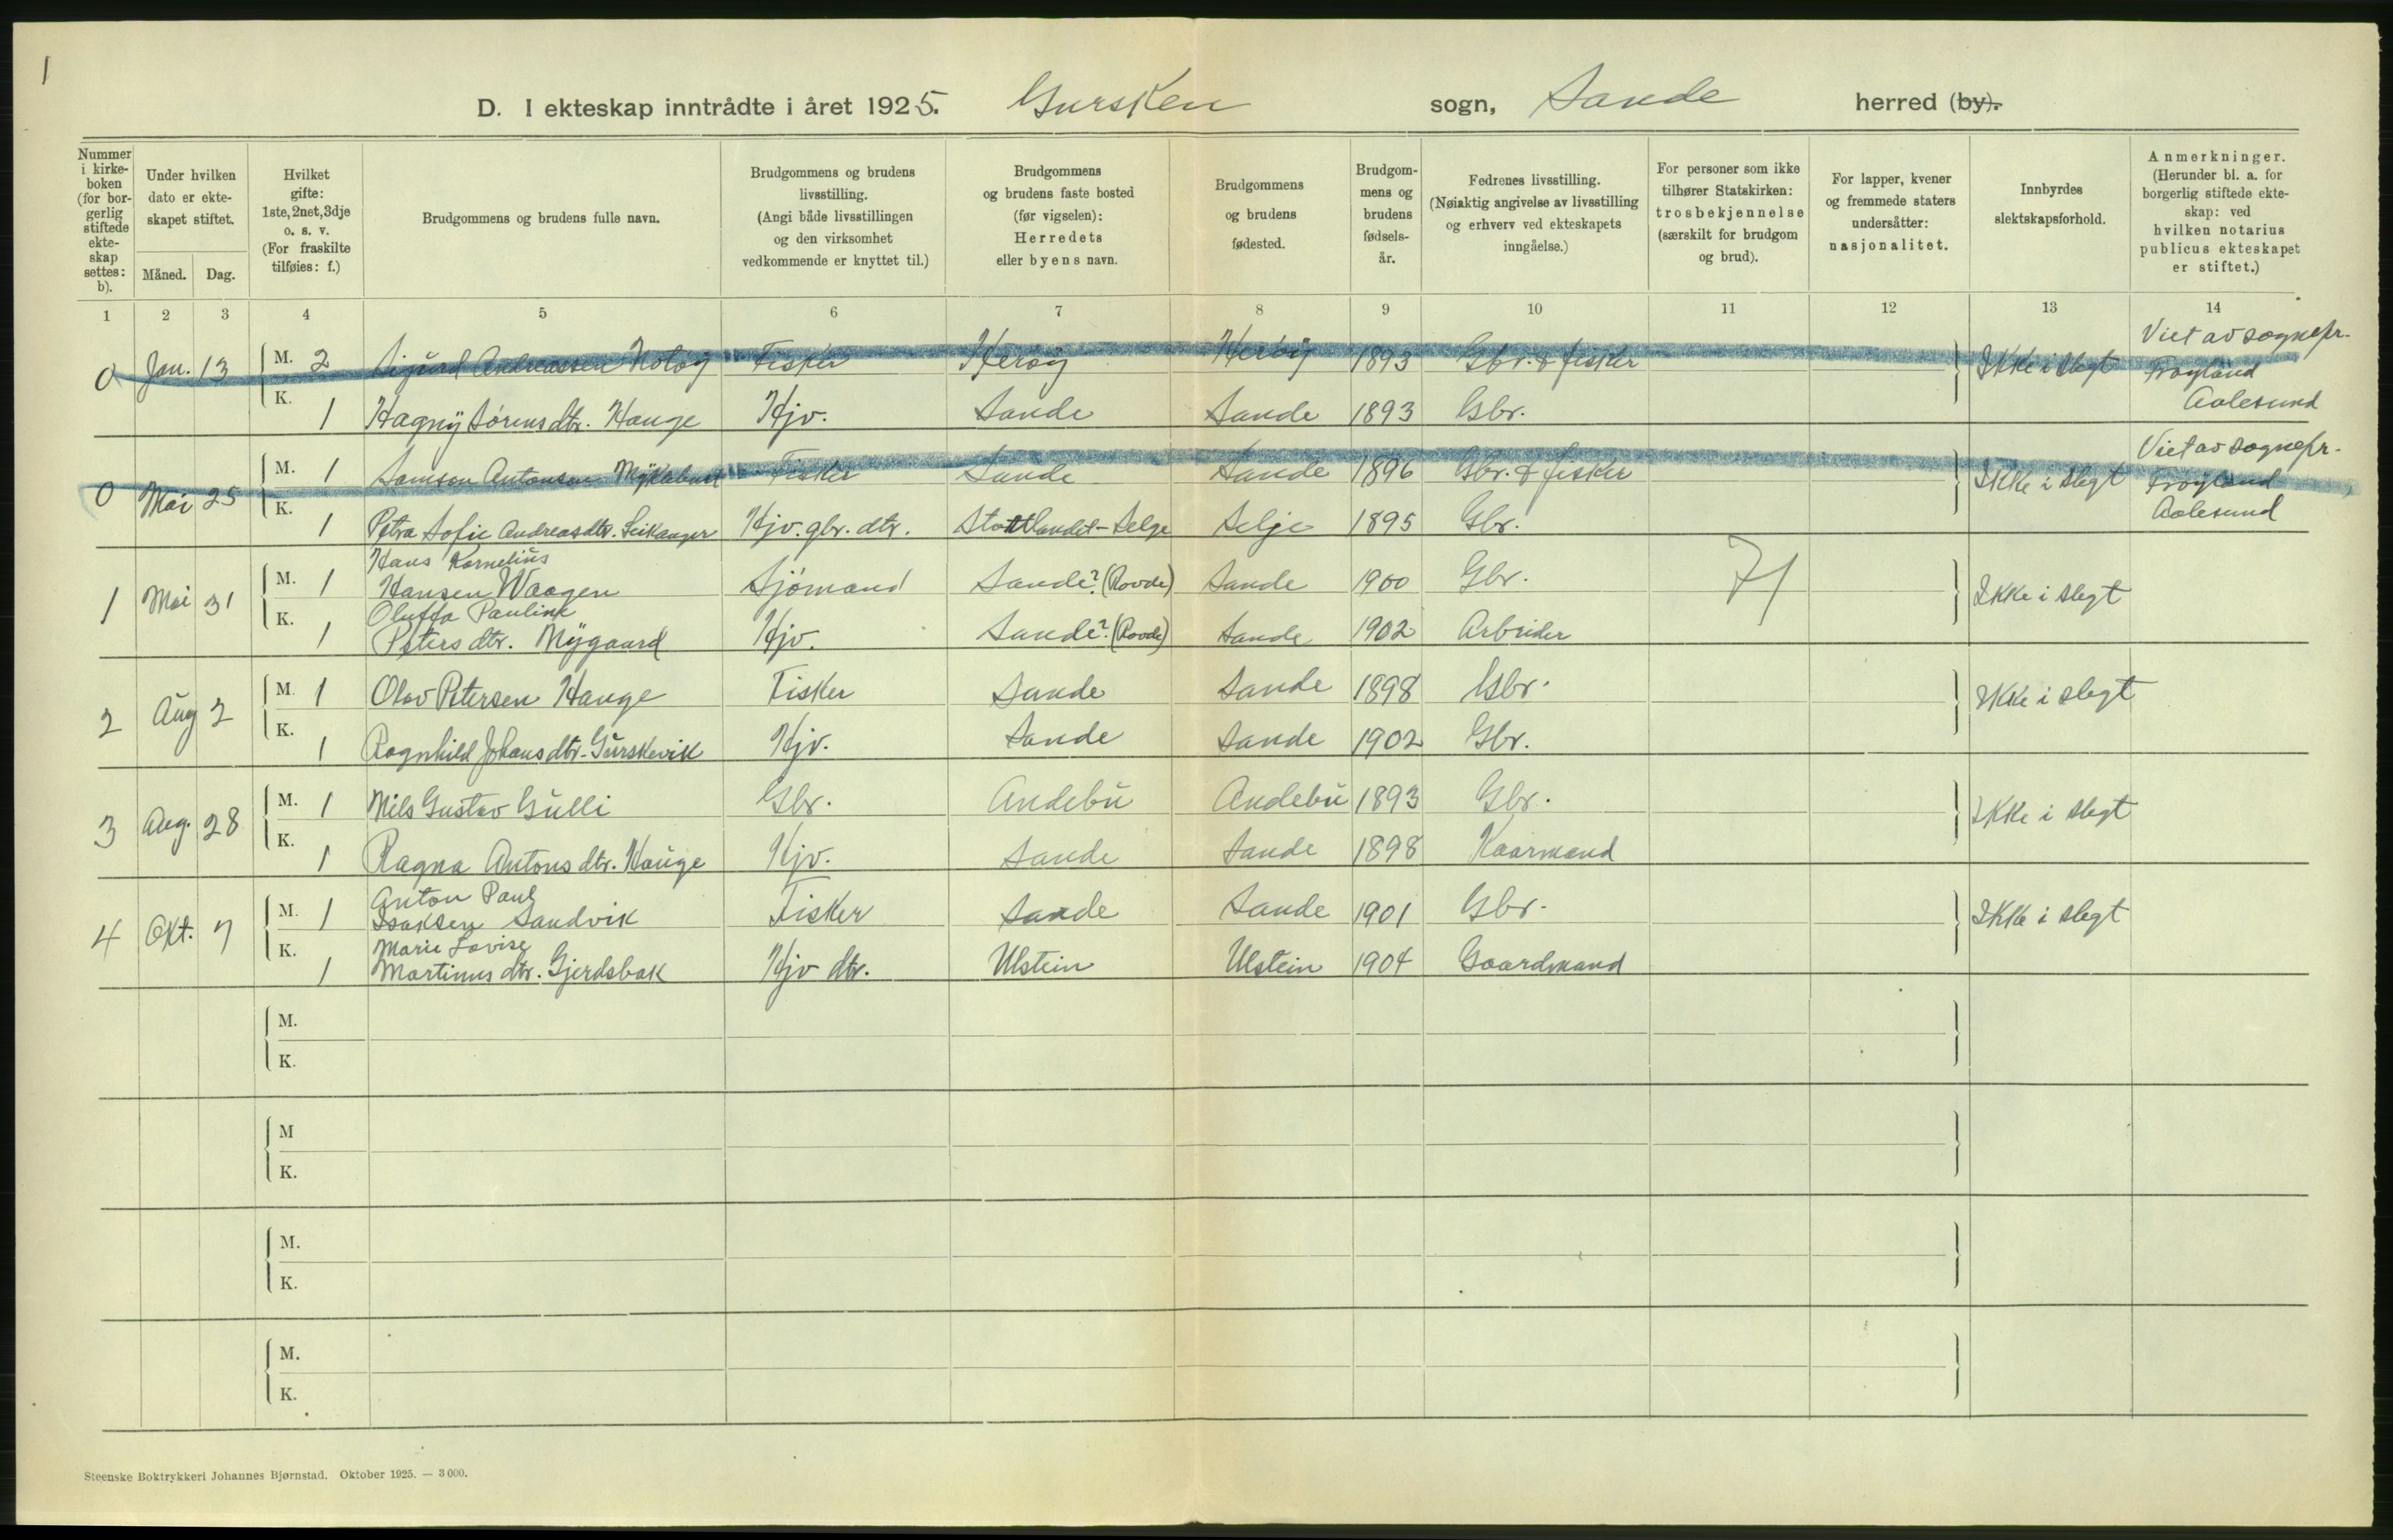 1
D. I ekteskap inntrådte i året 1925. Gursken sogn, Sande herred (by).
Nummer i kirke-boken (for bor-gerlig stiftede ekte-skap settes: b).
Under hvilken dato er ekte-skapet stiftet.
Måned. Dag.
Hvilket gifte: 1ste, 2net, 3dje o. s. v. (For fraskilte tilføies: f.)
Brudgommens og brudens fulle navn.
Brudgommens og brudens livsstilling. (Angi både livsstillingen og den virksomhet vedkommende er knyttet til.)
Brudgommens og brudens faste bosted (før vigselen): Herredets eller byens navn.
Brudgommens og brudens fødested.
Brudgom-mens og brudens fødsels-år.
Fedrenes livsstilling. (Nøiaktig angivelse av livsstilling og erhverv ved ekteskapets inngåelse.)
For personer som ikke tilhører Statskirken: trosbekjennelse (særskilt for brudgom og brud).
For lapper, kvener og fremmede staters undersåtter: nasjonalitet.
Innbyrdes slektskapsforhold.
Anmerkninger. (Herunder bl. a. for borgerlig stiftede ekte-skap: ved hvilken notarius publicus ekteskapet er stiftet.)
1 2 3 4 5 6 7 8 9 10 11 12 13 14
0 Jan. 13 M. 2 Sigurd Andreassen Notøy Fisker Herøy Herøy 1893 Gbr. & fisker Ikke i slegt Viet av sognepr. Frøyland Aalesund
K. 1 Hagny Sørens dtr. Hauge Hjv. Sande Sande 1893 Gbr.
0 Mai 25 M. 1 Samson Antonsen Myklebust Fisker Sande Sande 1896 Gbr. & fisker Ikke i slegt Viet av sognepr. Frøyland Aalesund
K. 1 Petra Sofie Andreasdtr. Leikanger Hjv. gbr. dtr. Stattlandet - Selge Selje 1895 Gbr.
1 Mai 31 M. 1 Hans Kornelius
Hansen Waagen Sjömand Sande? (Rovde) Sande 1900 Gbr. Ikke i slegt
Oluffa Pauline
K. 1 Peters dtr. Mygaard Hjv. Sande? (Rovde) Sande 1902 Arbeider
2 Aug 2 M. 1 Olav Petersen Hauge Fisker Sande Sande 1898 Gbr. Ikke i slegt
K. 1 Ragnhild Johans dtr. Gurskevik Hjv. Sande Sande 1902 Gbr.
3 Aug. 28 M. 1 Nils Gustav Gulli Gbr. Andebu Andebu 1893 Gbr. Ikke i slegt
K. 1 Ragna Antons dtr. Hauge Hjv. Sande Sande 1898 Kaarmand
4 Okt. 7 M. 1 Anton Paul
Isaksen Sandvik Fisker Sande Sande 1901 Gbr. Ikke i slegt
Marie Lovise
K. 1 Martinus dtr. Gjerdsbak Hjv dtr. Ulstein Ulstein 1904 Gaardmand
M.
K.
M
K.
M.
K.
M.
K.
Steenske Boktrykkeri Johannes Bjørnstad. Oktober 1925. — 3 000.